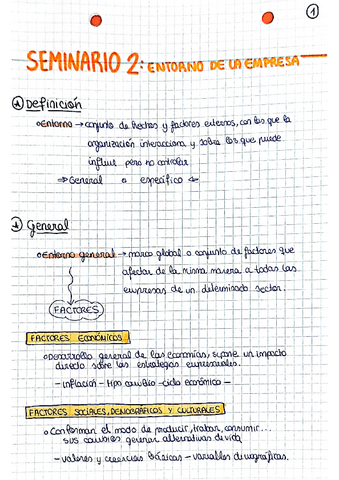 1
SEMINARIO 2: ENTORNO DE LA EMPRESA
Definición
Entorno → conjunto de hechos y factores externos, con los que la
organización interacciona y sobre los que puede
influir pero no controlar
⇒ General o específico ⇐
General
Entorno general → marco global o conjunto de factores que
afectan de la misma manera a todas las
empresas de un determinado sector.
FACTORES
FACTORES ECONÓMICOS
Desarrollo general de las economías, supone un impacto
directo sobre las estrategias empresariales.
- inflación - tipo cambio - ciclo económico -
FACTORES SOCIALES, DEMOGRÁFICOS Y CULTURALES
Conforman el modo de producir, trabar, consumir...
sus cambios generan alternativas de vida
- valores y creencias básicas - variables demográficas.